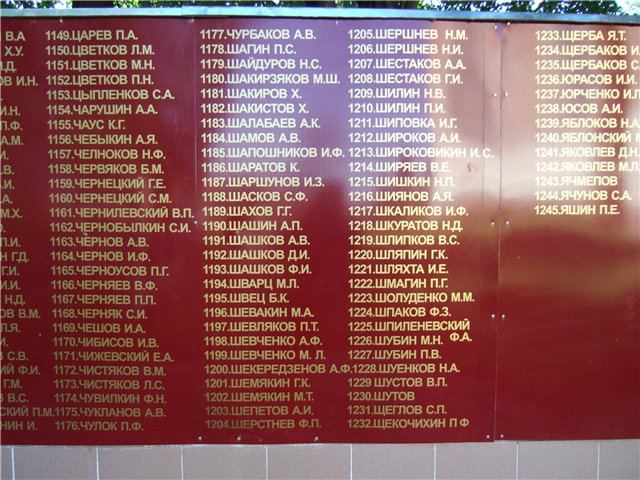 В.А
Х.У.
М.Д.
ОВ И.Н.
И.Н.
П.Ф.
А.М.
И.
.В.
И.
М.Х.
О.
П.И.
Н Г.Д.
Г.И.
И.
Н.Д.
ОВ В.М.
Л.Я.
.
В С.В.
ИЙ Ф.И.
Г.М.
В В.С.
СКИЙ П.М.
НИН И.
1149.ЦАРЕВ П.А.
1150.ЦВЕТКОВ Л.М.
1151.ЦВЕТКОВ М.Н.
1152.ЦВЕТКОВ П.Н.
1153.ЦЫПЛЕНКОВ С.А.
1154.ЧАРУШИН А.А.
1155.ЧАУС К.Г.
1156.ЧЕБЫКИН А.Я.
1157.ЧЕЛНОКОВ Н.Ф.
1158.ЧЕРВЯКОВ Б.М.
1159.ЧЕРНЕЦКИЙ Г.Е.
1160.ЧЕРНЕЦКИЙ С.М.
1161.ЧЕРНИЛЕВСКИЙ В.П.
1162.ЧЕРНОБЫЛКИН С.И.
1163.ЧЕРНОВ А.В.
1164.ЧЕРНОВ И.Ф.
1165.ЧЕРНОУСОВ П.Г.
1166.ЧЕРНЯЕВ В.Ф.
1167.ЧЕРНЯЕВ П.П.
1168.ЧЕРНЯК С.И.
1169.ЧЕШОВ И.А.
1170.ЧИБИСОВ И.В.
1171.ЧИЖЕВСКИЙ Е.А.
1172.ЧИСТЯКОВ В.М.
1173.ЧИСТЯКОВ Л.С.
1174.ЧУВИЛКИН Ф.Н.
1175.ЧУКЛАНОВ А.В.
1176.ЧУЛОК П.Ф.
1177.ЧУРБАКОВ А.В.
1178.ШАГИН П.С.
1179.ШАЙДУРОВ Н.С.
1180.ШАКИРЗЯКОВ М.Ш.
1181.ШАКИРОВ Х.
1182.ШАКИСТОВ Х.
1183.ШАЛАБАЕВ А.К.
1184.ШАМОВ А.В.
1185.ШАПОШНИКОВ И.Ф.
1186.ШАРАТОВ К.
1187.ШАРШУНОВ И.З.
1188.ШАСКОВ С.Ф.
1189.ШАХОВ Г.Г.
1190.ШАШИН А.П.
1191.ШАШКОВ А.В.
1192.ШАШКОВ Д.И.
1193.ШАШКОВ Ф.И.
1194.ШВАРЦ М.Л.
1195.ШВЕЦ Б.К.
1196.ШЕВАКИН М.А.
1197.ШЕВЛЯКОВ П.Т.
1198.ШЕВЧЕНКО А.Ф.
1199.ШЕВЧЕНКО М. Л.
1200.ШЕКЕРЕДЗЕНОВ А.Ф.
1201.ШЕМЯКИН Г.К.
1202.ШЕМЯКИН М.Т.
1203.ШЕПЕТОВ А.И.
1204.ШЕРСТНЕВ Ф.П.
1205.ШЕРШНЕВ Н.М.
1206.ШЕРШНЕВ Н.И.
1207.ШЕСТАКОВ А.А.
1208.ШЕСТАКОВ Г.И.
1209.ШИЛИН Н.В.
1210.ШИЛИН П.И.
1211.ШИПОВКА И.Г.
1212.ШИРОКОВ А.И.
1213.ШИРОКОВИКИН И.С.
1214.ШИРЯЕВ В.Е.
1215.ШИШКИН Н.П.
1216.ШИЯНОВ А.Я.
1217.ШКАЛИКОВ И.Ф.
1218.ШКУРАТОВ Н.Д.
1219.ШЛИПКОВ В.С.
1220.ШЛЯПИН Г.К.
1221.ШЛЯХТА И.Е.
1222.ШМАГИН П.Г.
1223.ШОЛУДЕНКО М.М.
1224.ШПАКОВ Ф.З.
1225.ШПИЛЕНЕВСКИЙ
Ф.А.
1226.ШУБИН М.Н.
1227.ШУБИН П.В.
1228.ШУЕНКОВ Н.А.
1229 ШУСТОВ В.П.
1230.ШУТОВ
1231.ЩЕГЛОВ С.П.
1232.ЩЕКОЧИХИН П Ф
1233.ЩЕРБА Я.Т.
1234.ЩЕРБАКОВ И
1235.ЩЕРБАКОВ С
1236.ЮРАСОВ И.И.
1237.ЮРЧЕНКО И.Л
1238.ЮСОВ А.И.
1239.ЯБЛОКОВ Н.А
1240.ЯБЛОНСКИЙ
1241.ЯКОВЛЕВ Д.Н.
1242.ЯКОВЛЕВ М.Л.
1243.ЯЧМЕПОВ
1244.ЯЧУНОВ С.А.
1245.ЯШИН П.Е.